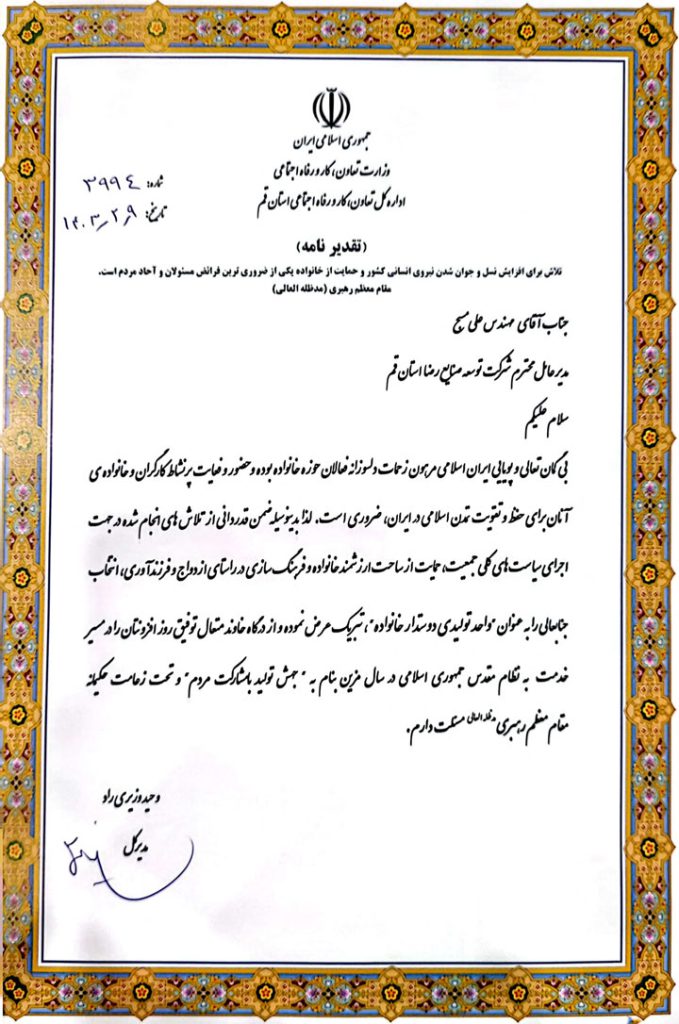 جمهوری اسلامی ایران
وزارت تعاون، کار و رفاه اجتماعی
اداره کل تعاون، کار و رفاه اجتماعی استان قم
شماره: ۳۹۹۴
تاریخ: ۱۴۰۳/۲/۹
(تقدیر نامه)
تلاش برای افزایش نسل و جوان شدن نیروی انسانی کشور و حمایت از خانواده یکی از ضروری ترین فرائض مسئولان و آحاد مردم است.
مقام معظم رهبری (مدظله العالی)
جناب آقای مهندس علی مسیح
مدیر عامل محترم شرکت توسعه صنایع رضا استان قم
سلام علیکم
بی گمان تعالی و پویایی ایران اسلامی مرهون زحمات دلسوزانه فعالان حوزه خانواده بوده و حضور و فعالیت پر نشاط کارگران و خانواده ی
آنان برای حفظ و تقویت تمدن اسلامی در ایران، ضروری است. لذا بدینوسیله ضمن قدردانی از تلاش های انجام شده در جهت
اجرای سیاست های کلی جمعیت، حمایت از ساحت ارزشمند خانواده و فرهنگ سازی در راستای ازدواج و فرزندآوری، انتخاب
جنابعالی را به عنوان "واحد تولیدی دوستدار خانواده"، تبریک عرض نموده و از درگاه خداوند متعال توفیق روز افزونتان را در مسیر
خدمت به نظام مقدس جمهوری اسلامی در سال مزین بنام به "جهش تولید با مشارکت مردم" و تحت زعامت حکیمانه
مقام معظم رهبری مدظله العالی مسئلت دارم.
وحید وزیری راد
مدیرکل